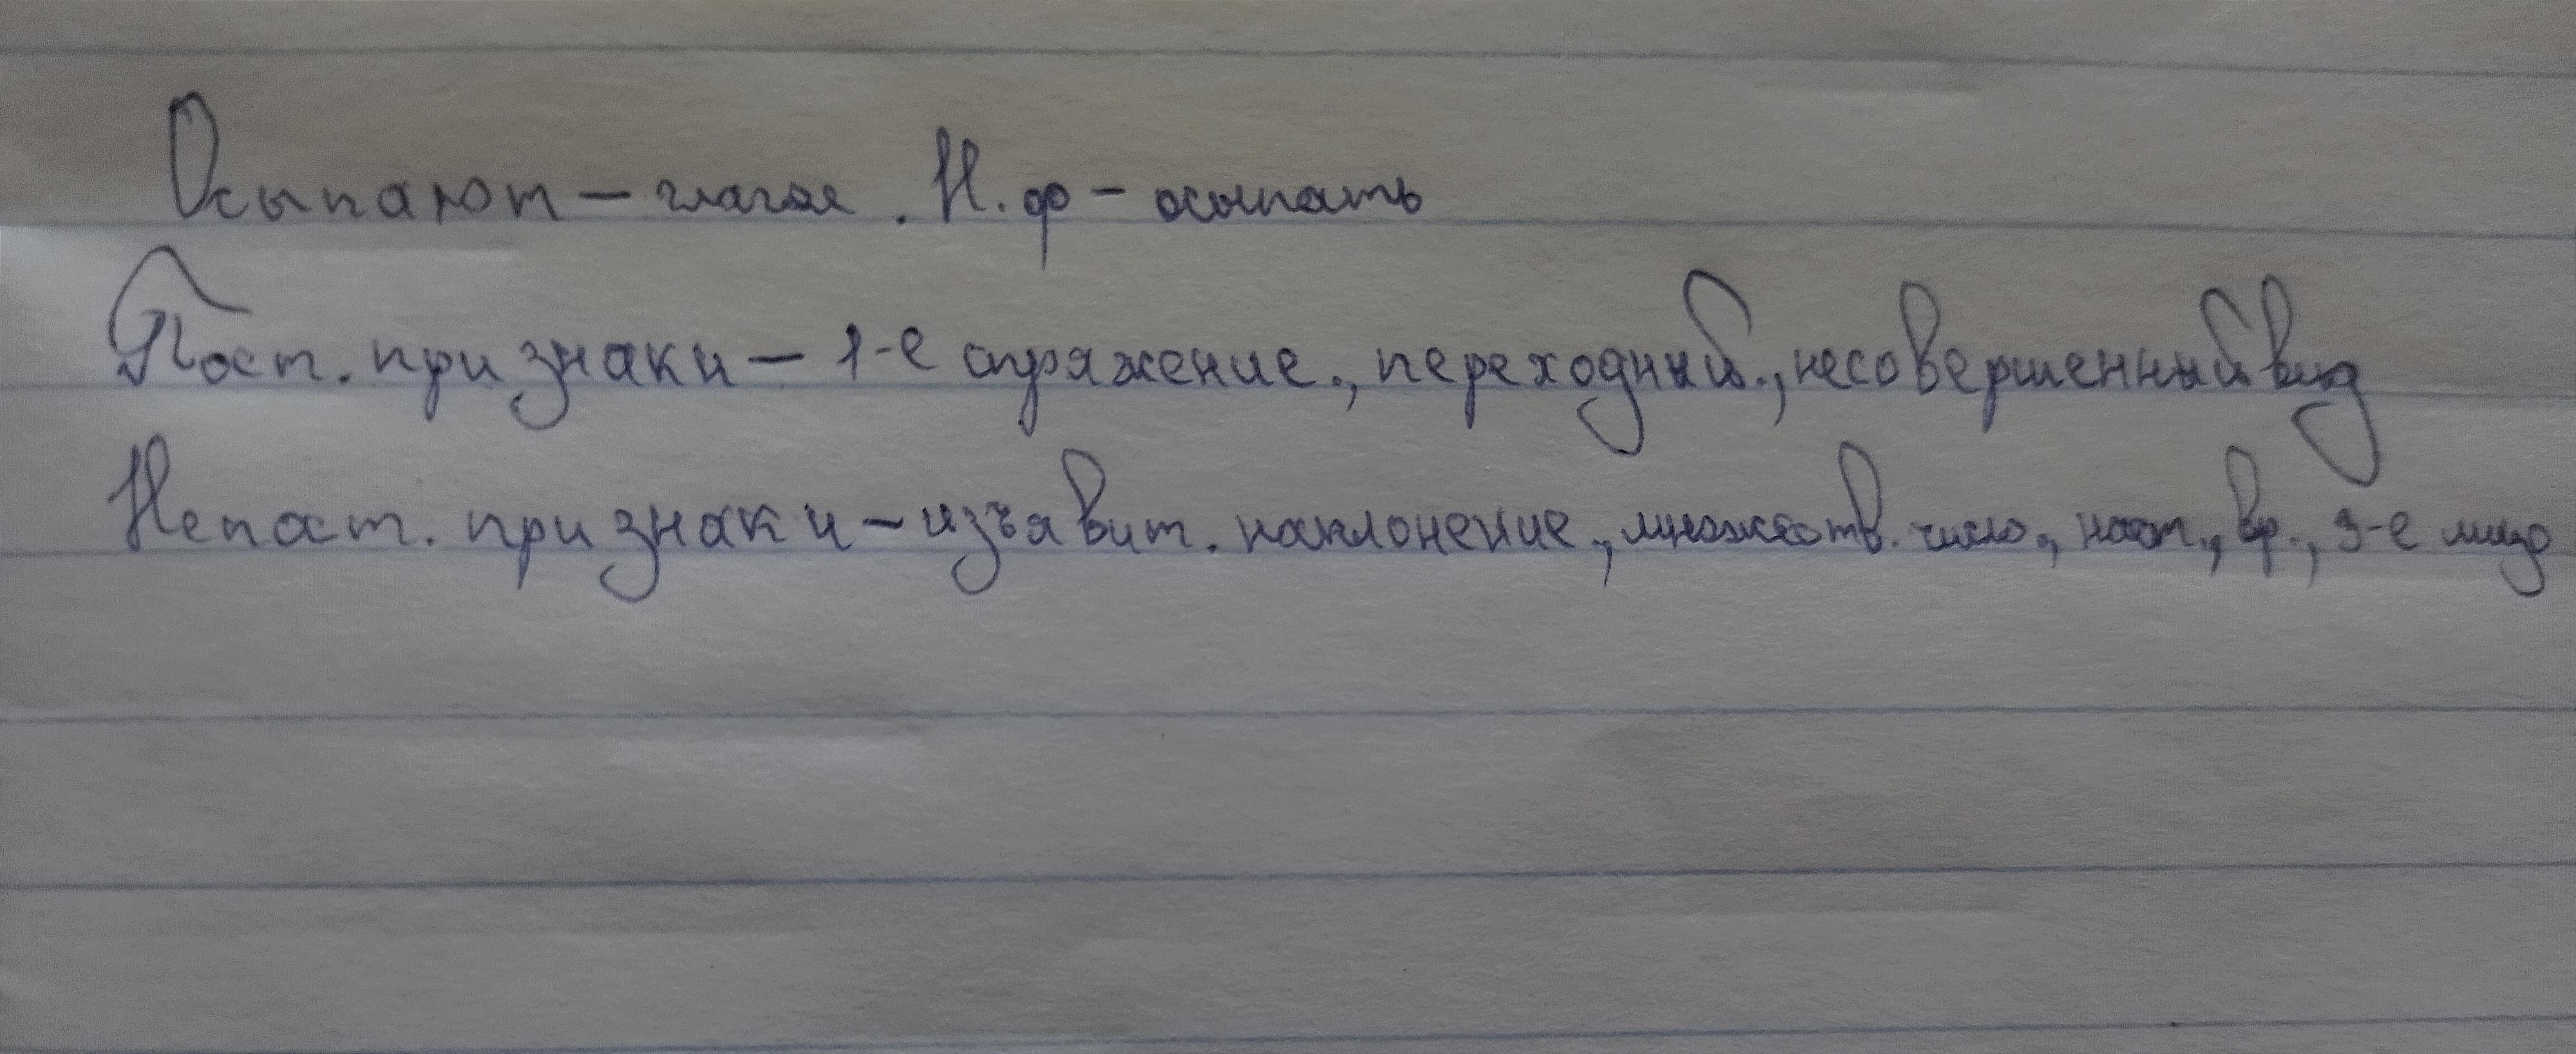 Осыпают – глагол. Н.ф – осыпать
Пост. признаки – 1-е спряжение., переходный., несовершенный вид
Непост. признаки – изъявит. наклонение., множеств. число., наст., вр., 3-е лицо